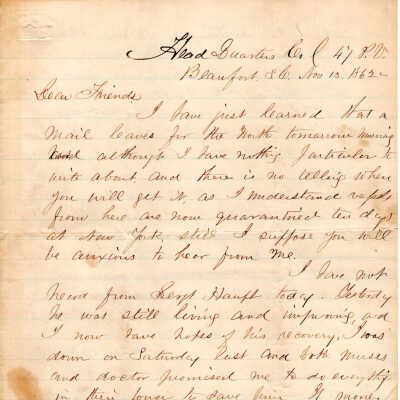 Head Quarters Co C 47 P.V.
Beaufort S.C. Nov 12. 1862
Dear Friends
I have just learned that a
mail leaves for the North tomorrow morning
and although I have nothing particular to
write about, and there is no telling when
you will get it, as I understand vessels
from here are now quarantined ten days
at New York, still I suppose you will
be anxious to hear from me.
I have not
heard from Sergt Haupt today. Yesterday
he was still living and improving, and
I now have hopes of his recovery, I was
down on Saturday last and both nurses
and doctor promised me to do everything
in their power to save him. If money